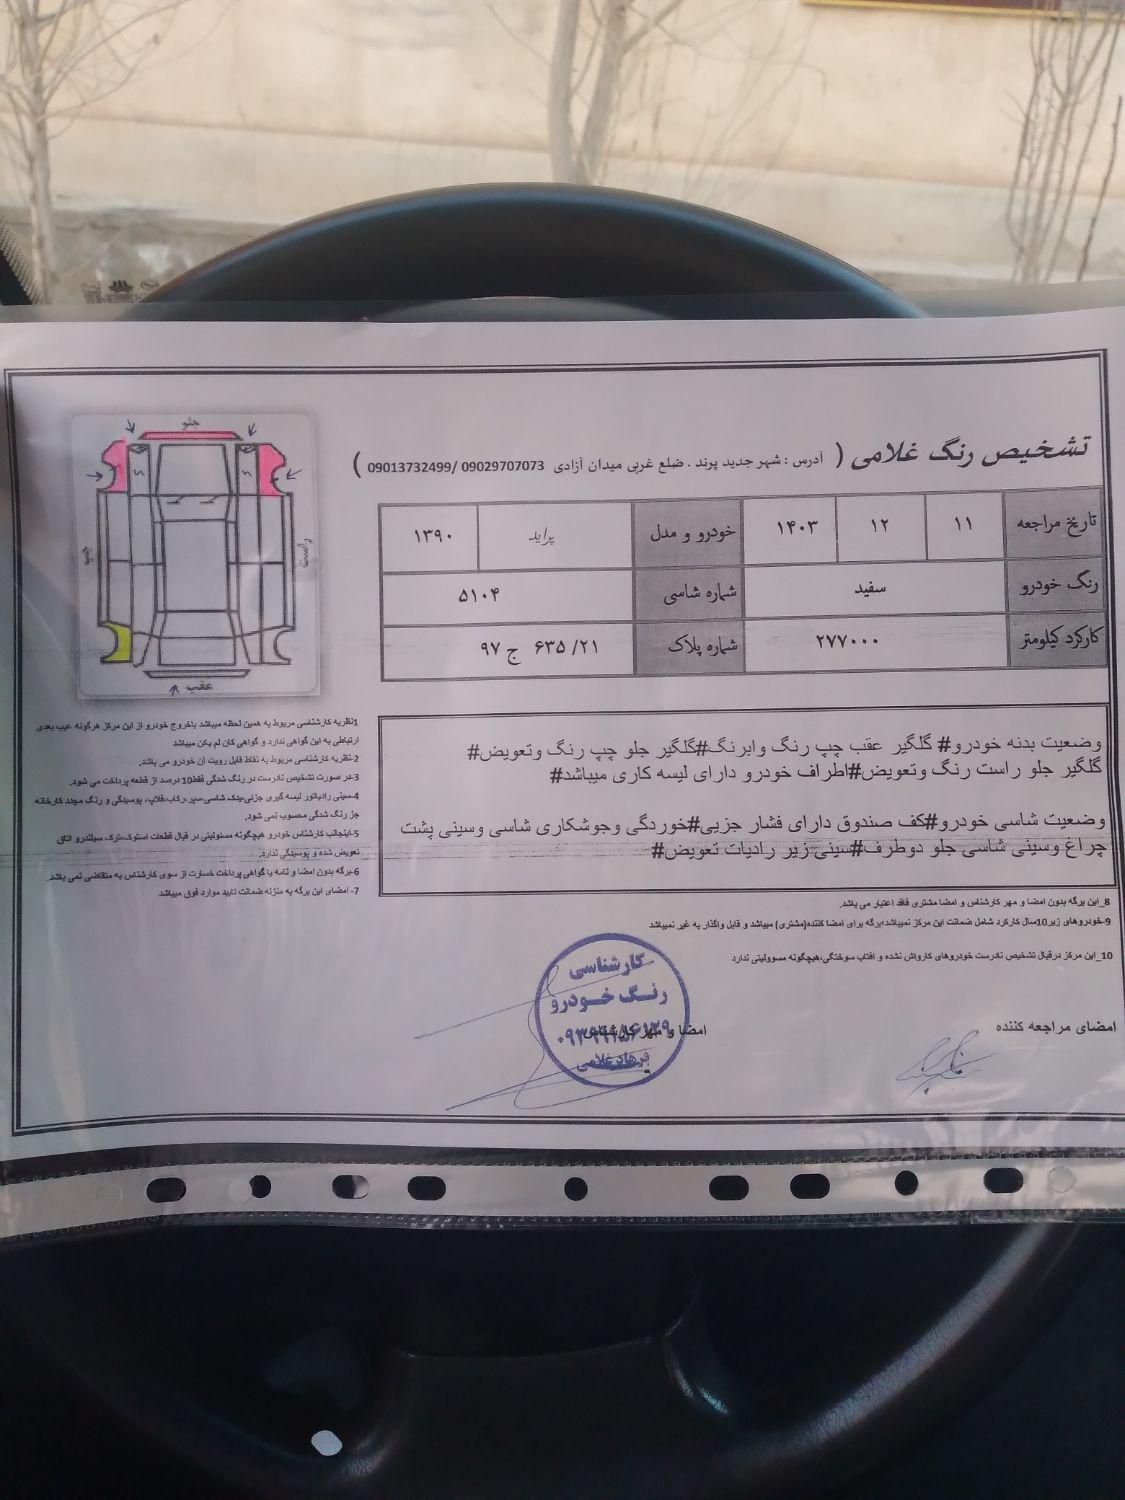 تشخیص رنگ غلامی ( آدرس : شهر جدید پرند . ضلع غربی میدان آزادی 09029707073 /09013732499 )
تاریخ مراجعه ۱۱ ۱۲ ۱۴۰۳ خودرو و مدل پراید ۱۳۹۰
رنگ خودرو سفید شماره شاسی ۵۱۰۴
کارکرد کیلومتر ۲۷۷۰۰۰ شماره پلاک ۲۱/ ۶۳۵ ج ۹۷
جلو
راست
چپ
عقب
وضعیت بدنه خودرو# گلگیر عقب چپ رنگ وابرنگ#گلگیر جلو چپ رنگ وتعویض#
گلگیر جلو راست رنگ وتعویض#اطراف خودرو دارای لیسه کاری میباشد#
وضعیت شاسی خودرو#کف صندوق دارای فشار جزیی#خوردگی وجوشکاری شاسی وسینی پشت
چراغ وسینی شاسی جلو دوطرف#سینی زیر رادیات تعویض#
1نظریه کارشناسی مربوط به همین لحظه میباشد باخروج خودرو از این مرکز هرگونه عیب بعدی
ارتباطی به این گواهی ندارد و گواهی کان لم یکن میباشد
2-نظریه کارشناسی مربوط به نقاط قابل رویت آن خودرو می باشد.
3-در صورت تشخیص نادرست در رنگ شدگی فقط10 درصد از قطعه پرداخت می شود.
4-سینی رادیاتور لیسه گیری جزئی،یدک شاسی،سپر،رکاب،فلاپ، پوسیدگی و رنگ مجدد کارخانه
جز رنگ شدگی محسوب نمی شود.
5-اینجانب کارشناس خودرو هیچگونه مسئولیتی در قبال قطعات استوک،ترک سیلندرو اتاق
تعویض شده و پوسیدگی ندارد.
6-برگه بدون امضا و نامه یا گواهی پرداخت خسارت از سوی کارشناس به متقاضی نمی باشد.
7- امضای این برگه به منزله ضمانت تایید موارد فوق میباشد
8_این برگه بدون امضا و مهر کارشناس و امضا مشتری فاقد اعتبار می باشد.
9-خودروهای زیر10سال کارکرد شامل ضمانت این مرکز نمیباشد؛برگه برای امضا کننده(مشتری) میباشد و قابل واگذار به غیر نمیباشد
10_این مرکز درقبال تشخیص نادرست خودروهای کارواش نشده و افتاب سوختگی،هیچگونه مسوولیتی ندارد
امضای مراجعه کننده
امضا و مهر کارشناس
کارشناسی
رنگ خودرو
فرهاد غلامی